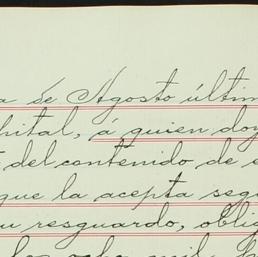 a de Agosto últim
pital, á quien doy
del contenido de e
que la acepta segu
u resguardo, oblig
los ocho mil